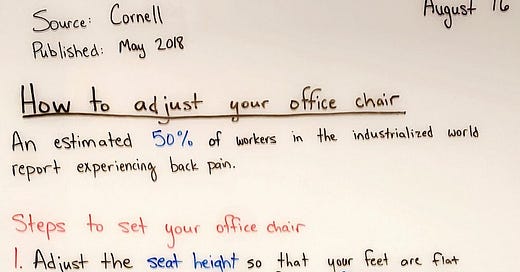 Source: Cornell
August 16
Published: May 2018
How to adjust your office chair
An estimated 50% of workers in the industrialized world
report experiencing back pain.
Steps to set your office chair
1. Adjust the seat height so that your feet are flat